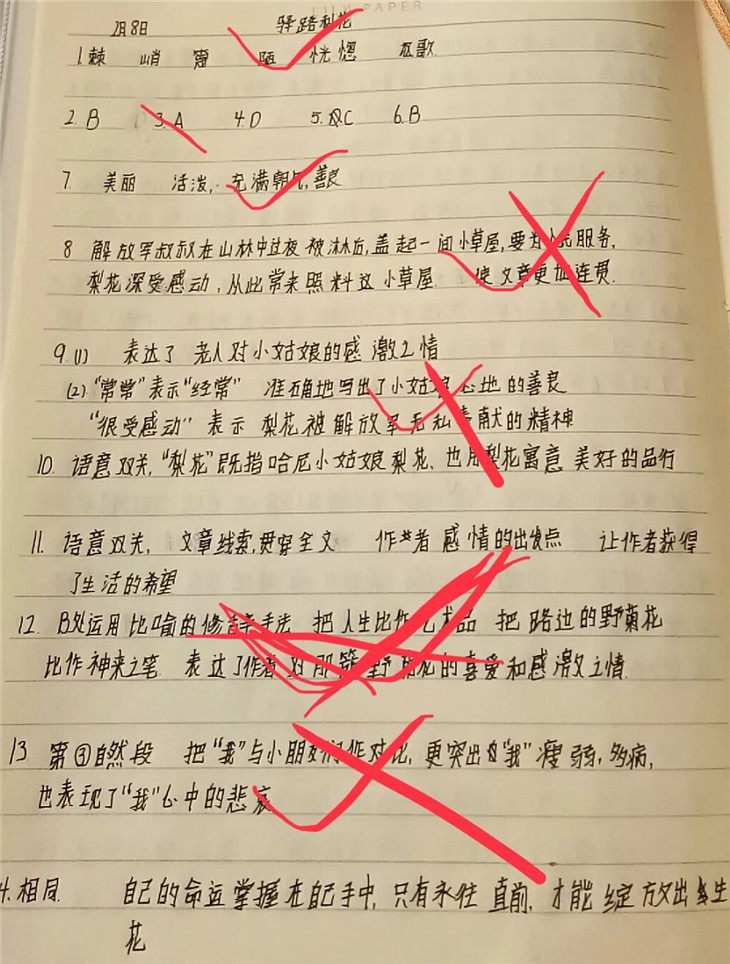 2月8日 驿路梨花
1.棘 峭 陋 恍惚
2.B 3.A 4.D 5.C 6.B
7. 美丽 活泼, 充满朝气,善良
8 解放军叔叔在山林中过夜 被淋后,盖起一间小草屋,要为人民服务,
梨花深受感动,从此常来照料这小草屋. 使文章更加连贯.
9.(1) 表达了老人对小姑娘的感激之情
(2).“常常”表示“经常” 准确地写出了小姑娘心地的善良
“很受感动”表示 梨花被解放军无私奉献的精神
10. 语意双关,“梨花”既指哈尼小姑娘梨花、也用梨花寓意 美好的品行
11. 语意双关, 文章线索,贯穿全文 作者 感情的出发点 让作者获得
了生活的希望
12. B处运用比喻的修辞手法 把人生比作艺术品 把路边的野菊花
比作神来之笔 表达了作者对那簇野菊花的喜爱和感激之情.
13 第④自然段 把“我”与小朋友们作对比,更突出“我”瘦弱,多病,
也表现了“我”心中的悲哀
4.相同. 自己的命运掌握在自己手中,只有永往直前,才能绽放出生
花